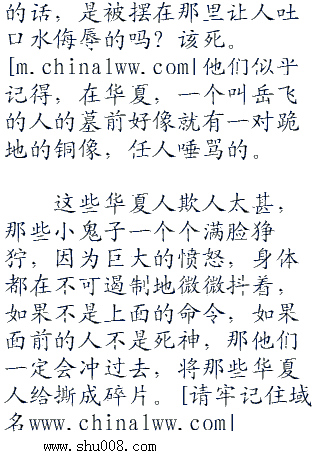 的话，是被摆在那里让人吐
口水侮辱的吗？该死。
[m.chinalww.com|他们似乎
记得，在华夏，一个叫岳飞
的人的墓前好像就有一对跪
地的铜像，任人唾骂的。
这些华夏人欺人太甚，
那些小鬼子一个个满脸狰
狞，因为巨大的愤怒，身体
都在不可遏制地微微抖着，
如果不是上面的命令，如果
面前的人不是死神，那他们
一定会冲过去，将那些华夏
人给撕成碎片。[请牢记住域
名www.chinalww.com|
www.shu008.com